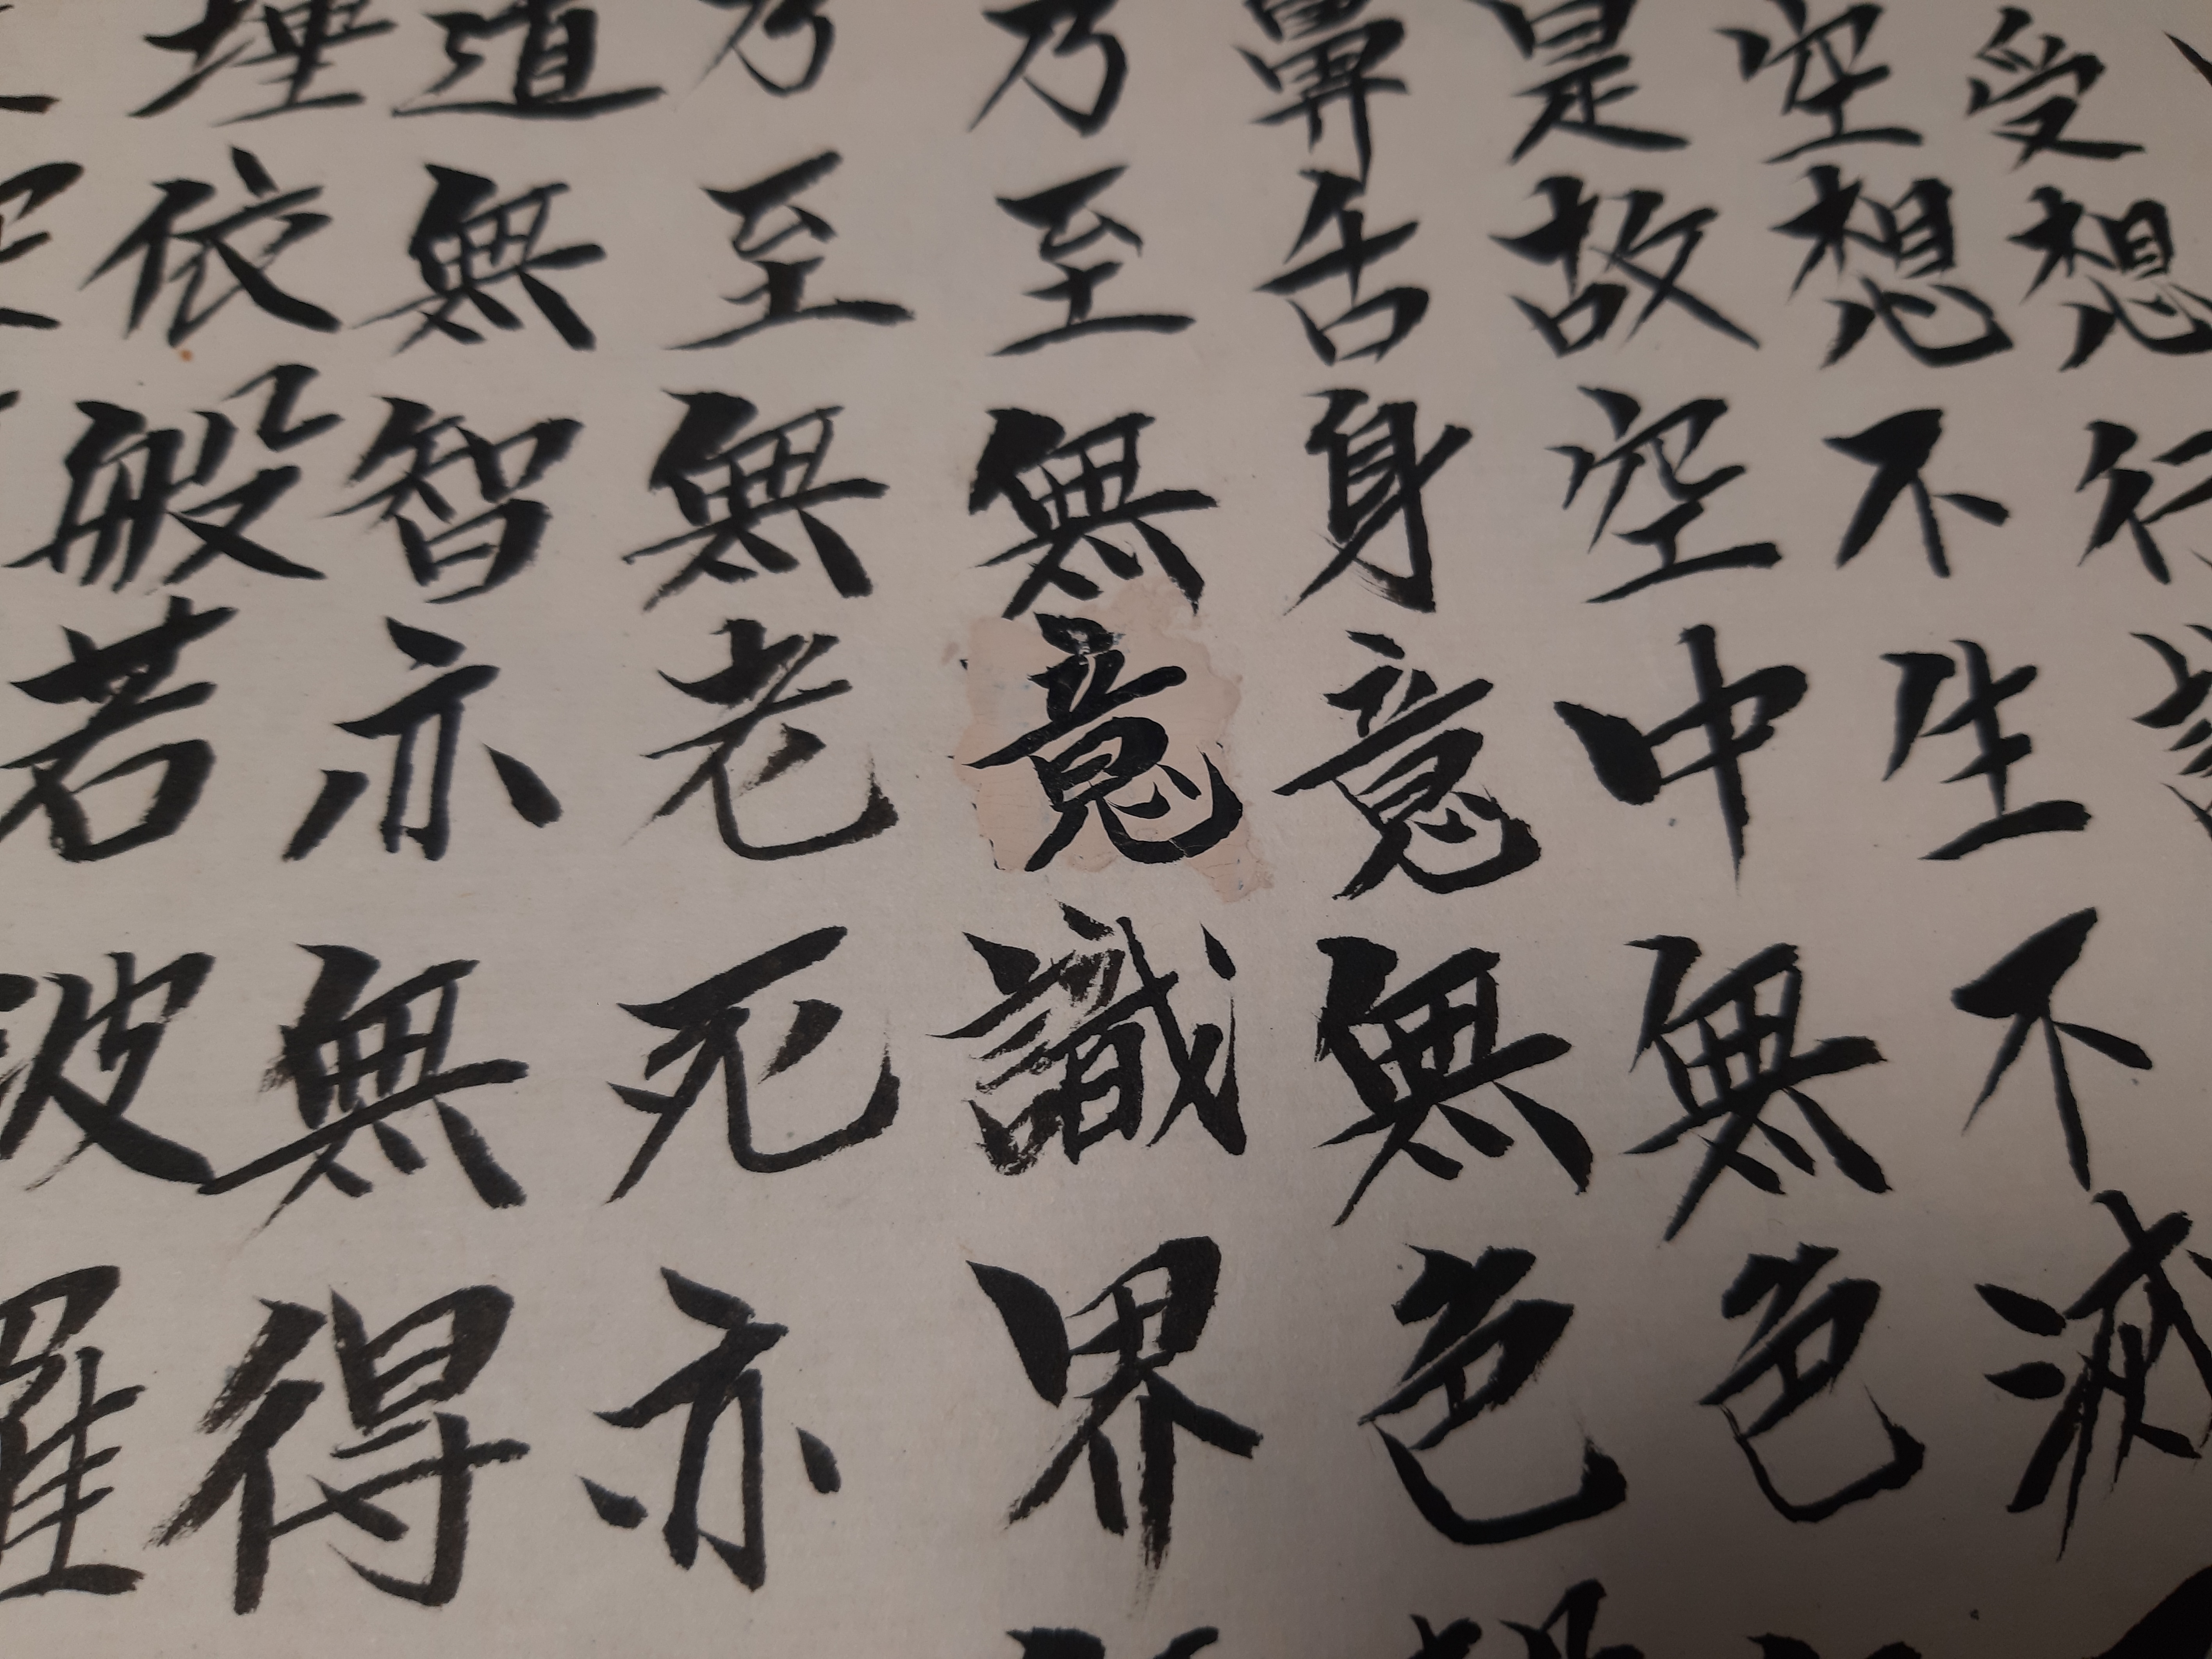 受想行識
空想不生不滅
是故空中無色
鼻舌身意無色
乃至無意識界
乃至無老死亦
道無智亦無得
埵依般若波羅